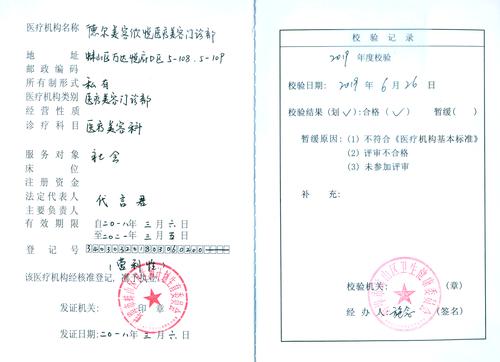 医疗机构名称 德尔美客欣悦医疗美容门诊部
地 址 蚌山区万达悦府D区5-108、5-109
邮政编码
所有制形式 私有
医疗机构类别 医疗美容门诊部
经营性质
诊疗科目 医疗美容科
服务对象 社会
床 位
注册资金
法定代表人 代言君
主要负责人
有效期限 自二〇一八年三月六日
至二〇二一年三月五日
登 记 号
营利性
该医疗机构经核准登记,准予执业
发证机关: 印 章
发证日期:二〇一八年三月六日
校验记录
2019 年度校验
校验日期: 2019 年 6 月 26 日
校验结果(划✓):合格(✓) 暂缓( )
暂缓原因:(1)不符合《医疗机构基本标准》
(2)评审不合格
(3)未参加评审
补 充:
校验机关: (章)
经 办 人: (签名)